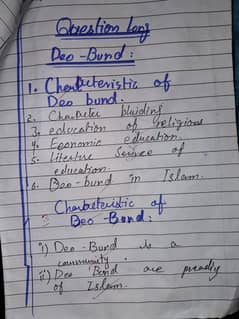 Question Long
Deo-Bund:
1. Charleteristic of
Deo bund.
2. Charleter bluiding
3. education of religious
4. Economic education.
5. litesture Science of
education.
6. Deo-bund in Islam.
Charleteristic of
Deo-Bund.
i) Deo-Bund is a
community.
ii) Deo Bond are
of Islam.